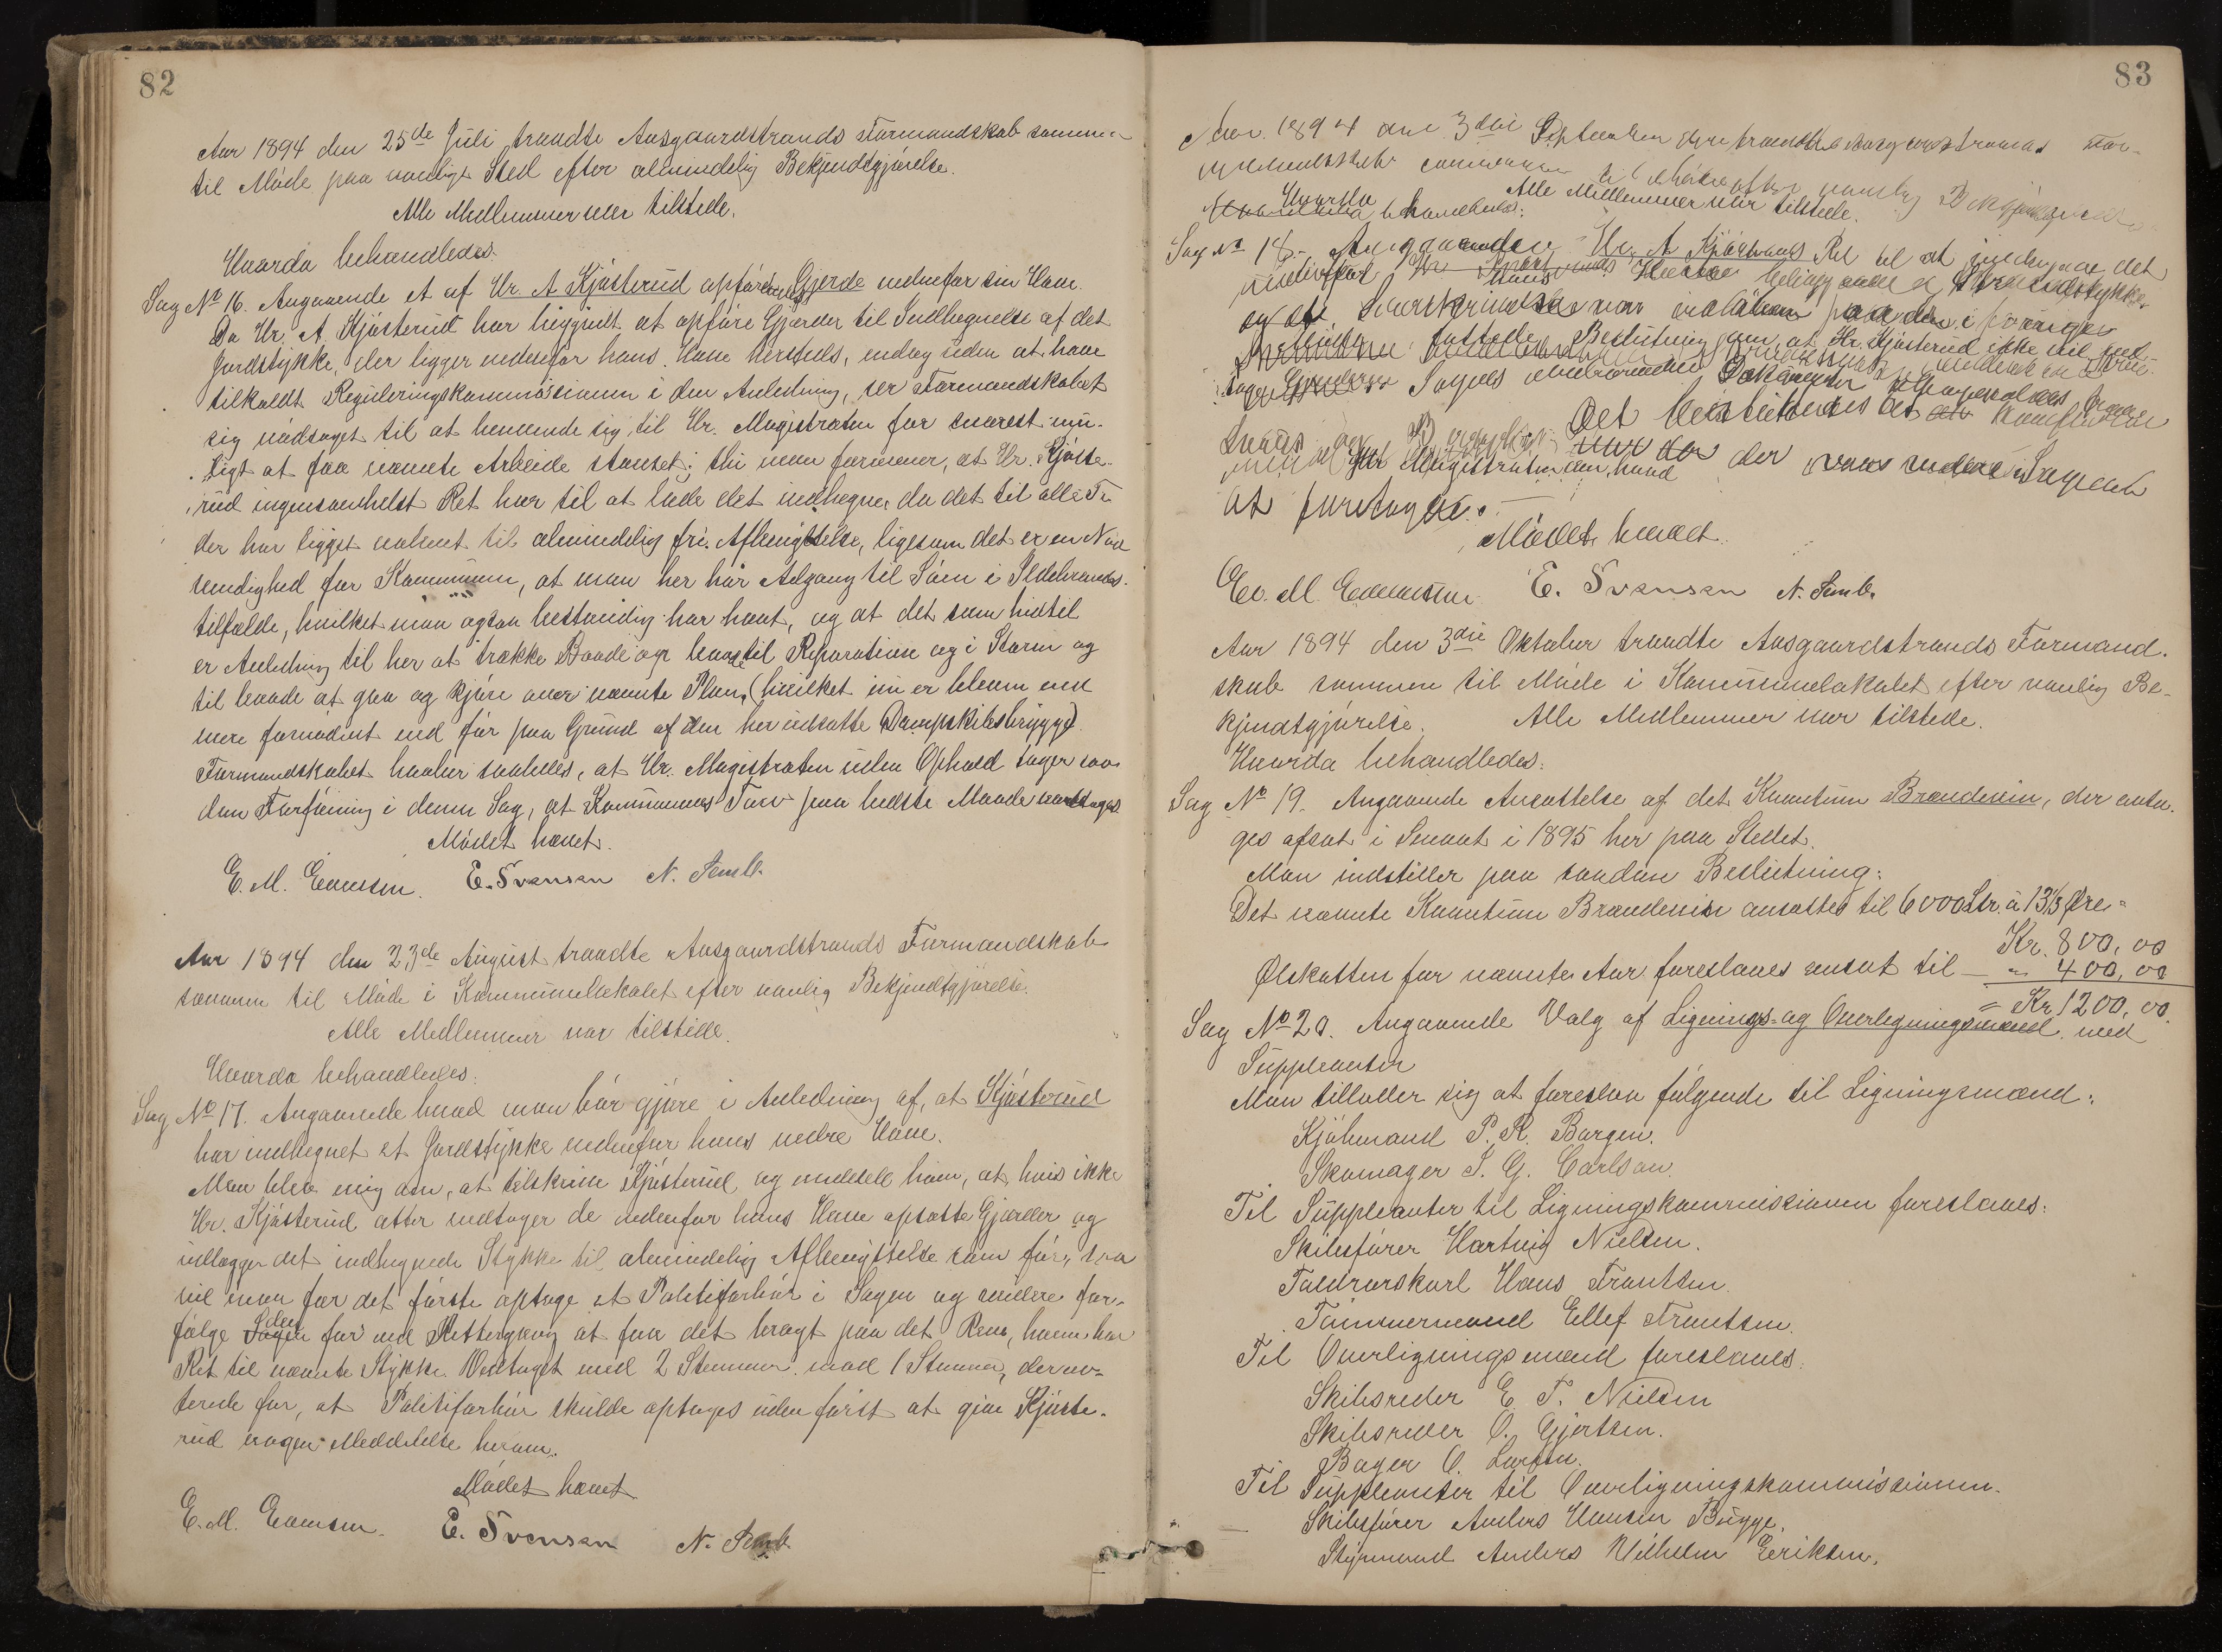 82
Aar 1894 den 25de Juli traadte Aasgaardstrands Formandskab sammen
til Møde paa vanlige Sted efter almindelig Bekjendtgjørelse.
Alle Medlemmer var tilstede.
Hvorda behandledes:
Sag No 16. Angaaende et af Hr. A Kjøsterud opført Gjerde nedenfor sin Have.
Da Hr. A. Kjøsterud har begyndt at opføre Gjerder til Indhegnelse af det
Jordstykke, der ligger nedenfor hans Have hersteds, endog uden at have
tilkaldt Reguleringskommissionen i den Anledning, ser Formandskabet
sig nødsaget til at henvende sig til Hr. Magistraten for snarest mu-
ligt at faa nævnte Arbeide standset; thi man formener, at Hr. Kjøste-
rud ingensomhelst Ret har til at lade det indhegne, da det til alle Ti-
der har ligget aabent til almindelig fri Afbenyttelse, ligesom det er en Nød
vendighed for Kommunen, at man her har Adgang til Søen i Ildebrands-
tilfælde, hvilket man ogsaa bestandig har havt, og at det som hidtil
er Anledning til her at trække Baade op baade til Reparation og i Storm og
til baade at gaa og kjøre over nævnte Plan, (hvilket nu er bleven end
mere fornødent end før paa Grund af den her indsatte Dampskibsbrygge).
Formandskabet haaber saaledes, at Hr. Magistraten uden Ophold tager saa-
dan Forføining i denne Sag, at Kommunens Tarv paa bedste Maade varetages
Mødet hævet.
E. M. Evensen. E. Svensen N. Semb.
Aar 1894 den 23de August traadte Aasgaardstrands Formandskab
sammen til Møde i Kommunelokalet efter vanlig Bekjendtgjørelse.
Alle Medlemmer var tilstede.
Hvorda behandledes:
Sag No 17. Angaaende hvad man bør gjøre i Anledning af, at Kjøsterud
har indhegnet et Jordstykke nedenfor hans nedre Have.
Man blev enig om, at tilskrive Kjøsterud og meddele ham, at, hvis ikke
Hr. Kjøsterud atter nedtager de nedenfor hans Have opsatte Gjærder og
udlægger det indhegnede Stykke til almindelig Afbenyttelse som før, saa
vil man for det første optage et Politiforhør i Sagen og videre for-
følge Sagen den for ved Rettergang at faa det bragt paa det Rene, hvem har
Ret til nævnte Stykke. Vedtaget med 2 Stemmer mod 1 Stemme, der vo-
terede for, at Politiforhør skulde optages uden først at give Kjøste-
rud nogen Meddelelse herom.
Mødet hævet
E. M. Evensen. E. Svensen N. Semb.
83
Aar 1894 den 3die September traadte Aasgaardstrands For-
mandskab sammen til Møde efter vanlig Bekjendtgjørelse
Alle Medlemmer var tilstede.
Hvorda behandledes:
Sag No 18. Angaaende Hr. A Kjøsteruds Ret til at indhegne det
nedenfor hans Have beliggende Strandstykke
Beslutning om, at Hr. Kjøsterud ikke vil ned-
tage Gjerderne Sagens
Det besluttedes at
Magistraten om, hvad der videre i Sagen
at foretage.
Mødet hævet.
E. M. Evensen E. Svensen N. Semb.
Aar 1894 den 3die Oktober traadte Aasgaardstrands Formand-
skab sammen til Møde i Kommunelokalet efter vanlig Be-
kjendtgjørelse. Alle Medlemmer var tilstede.
Hvorda behandledes:
Sag No 19. Angaaende Ansættelse af det Kvantum Brændevin, der anta-
ges afsat i Smaat i 1895 her paa Stedet.
Man indstiller paa saadan Beslutning:
Det nævnte Kvantum Brændevin ansættes til 6000 Ltr. à 13 1/3 Øre =
Kr. 800,00
Ølskatten for nævnte Aar foreslaaes ansat til — " 400,00
= Kr 1200,00.
Sag No 20. Angaaende Valg af Lignings- og Overligningsmænd med
Suppleanter
Man tillader sig at foreslaa følgende til Ligningsmænd:
Kjøbmand P. R. Borgen.
Skomager S. G. Carlson.
Til Suppleanter til Ligningskommissionen foreslaaes:
Skibsfører Hartvig Nielsen.
Toldrorskarl Hans Frantsen.
Tømmermand Ellef Frantsen.
Til Overligningsmænd foreslaaes:
Skibsreder E. T. Nielsen
Skibsreder O. Gjertsen.
Bager O. Larsen.
Til Suppleanter til Overligningskommissionen.
Skibsfører Anders Hansen Bugge.
Styrmand Anders Wilhelm Eriksen.